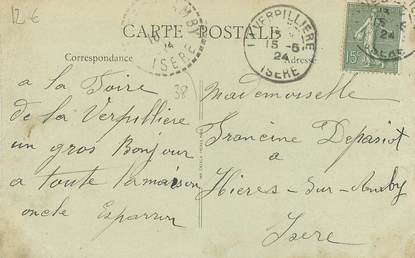 12 €
CARTE POSTALE
Correspondance
Adresse
LA VERPILLIERE
15-5
24
ISERE
MBY
14
ISERE
15c
24
38
a la Foire
de la Verpillière
un gros Bonjour
a toute la maison
oncle Esparron
Mademoiselle
Francine Depasiot
a
Hières-sur-Amby
Isere